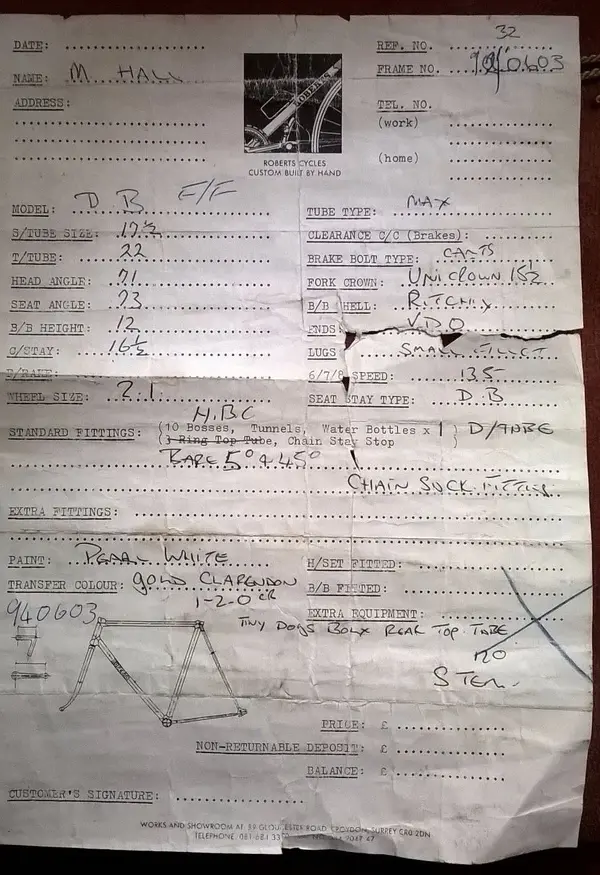 32
DATE:
REF. NO.
NAME: M HALL
FRAME NO. 940603
ADDRESS:
TEL. NO.
(work)
(home)
ROBERTS
ROBERTS CYCLES
CUSTOM BUILT BY HAND
MODEL: D B F/F
TUBE TYPE: MAX
S/TUBE SIZE: 17½
CLEARANCE C/C (Brakes):
T/TUBE: 22
BRAKE BOLT TYPE: CANTS
HEAD ANGLE: 71
FORK CROWN: UNICROWN 1 5/32
SEAT ANGLE: 73
B/B SHELL: RITCHIX
B/B HEIGHT: 12
ENDS: VDO
C/STAY: 16½
LUGS SMALL FILLET
B/RAKE:
6/7/8 SPEED: 135
WHEEL SIZE: 2.1
SEAT STAY TYPE: D.B
H.BC
STANDARD FITTINGS: (10 Bosses, Tunnels, Water Bottles x 1 ) D/TUBE
(3 Ring Top Tube, Chain Stay Stop )
RARE 5° & 45°
CHAIN SUCK FITTED
EXTRA FITTINGS:
PAINT: PEARL WHITE
H/SET FITTED:
TRANSFER COLOUR: GOLD CLARENDON
B/B FITTED:
1-2-0 CR
EXTRA EQUIPMENT:
940603
TINY DOGS BOLX REAR TOP TUBE
NO
STEM
PRICE: £
NON-RETURNABLE DEPOSIT: £
BALANCE: £
CUSTOMER'S SIGNATURE:
WORKS AND SHOWROOM AT 89 GLOUCESTER ROAD, CROYDON, SURREY CR0 2DN
TELEPHONE: 081 681 33